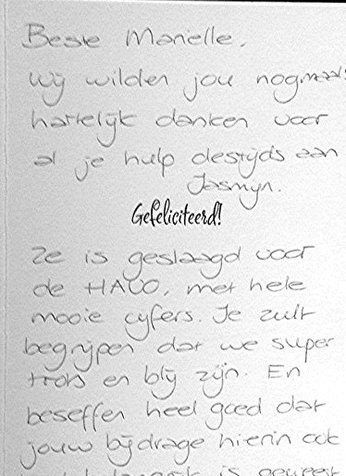 Beste Manelle,
Wij wilden jou nogmaals
hartelijk danken voor
al je hulp destijds aan
Jasmijn.
Gefeliciteerd!
Ze is geslaagd voor
de HAVO, met hele
mooie cijfers. Je zult
begrijpen dat we super
trots en blij zijn. En
beseffen heel goed dat
jouw bijdrage hierin ook
is geweest